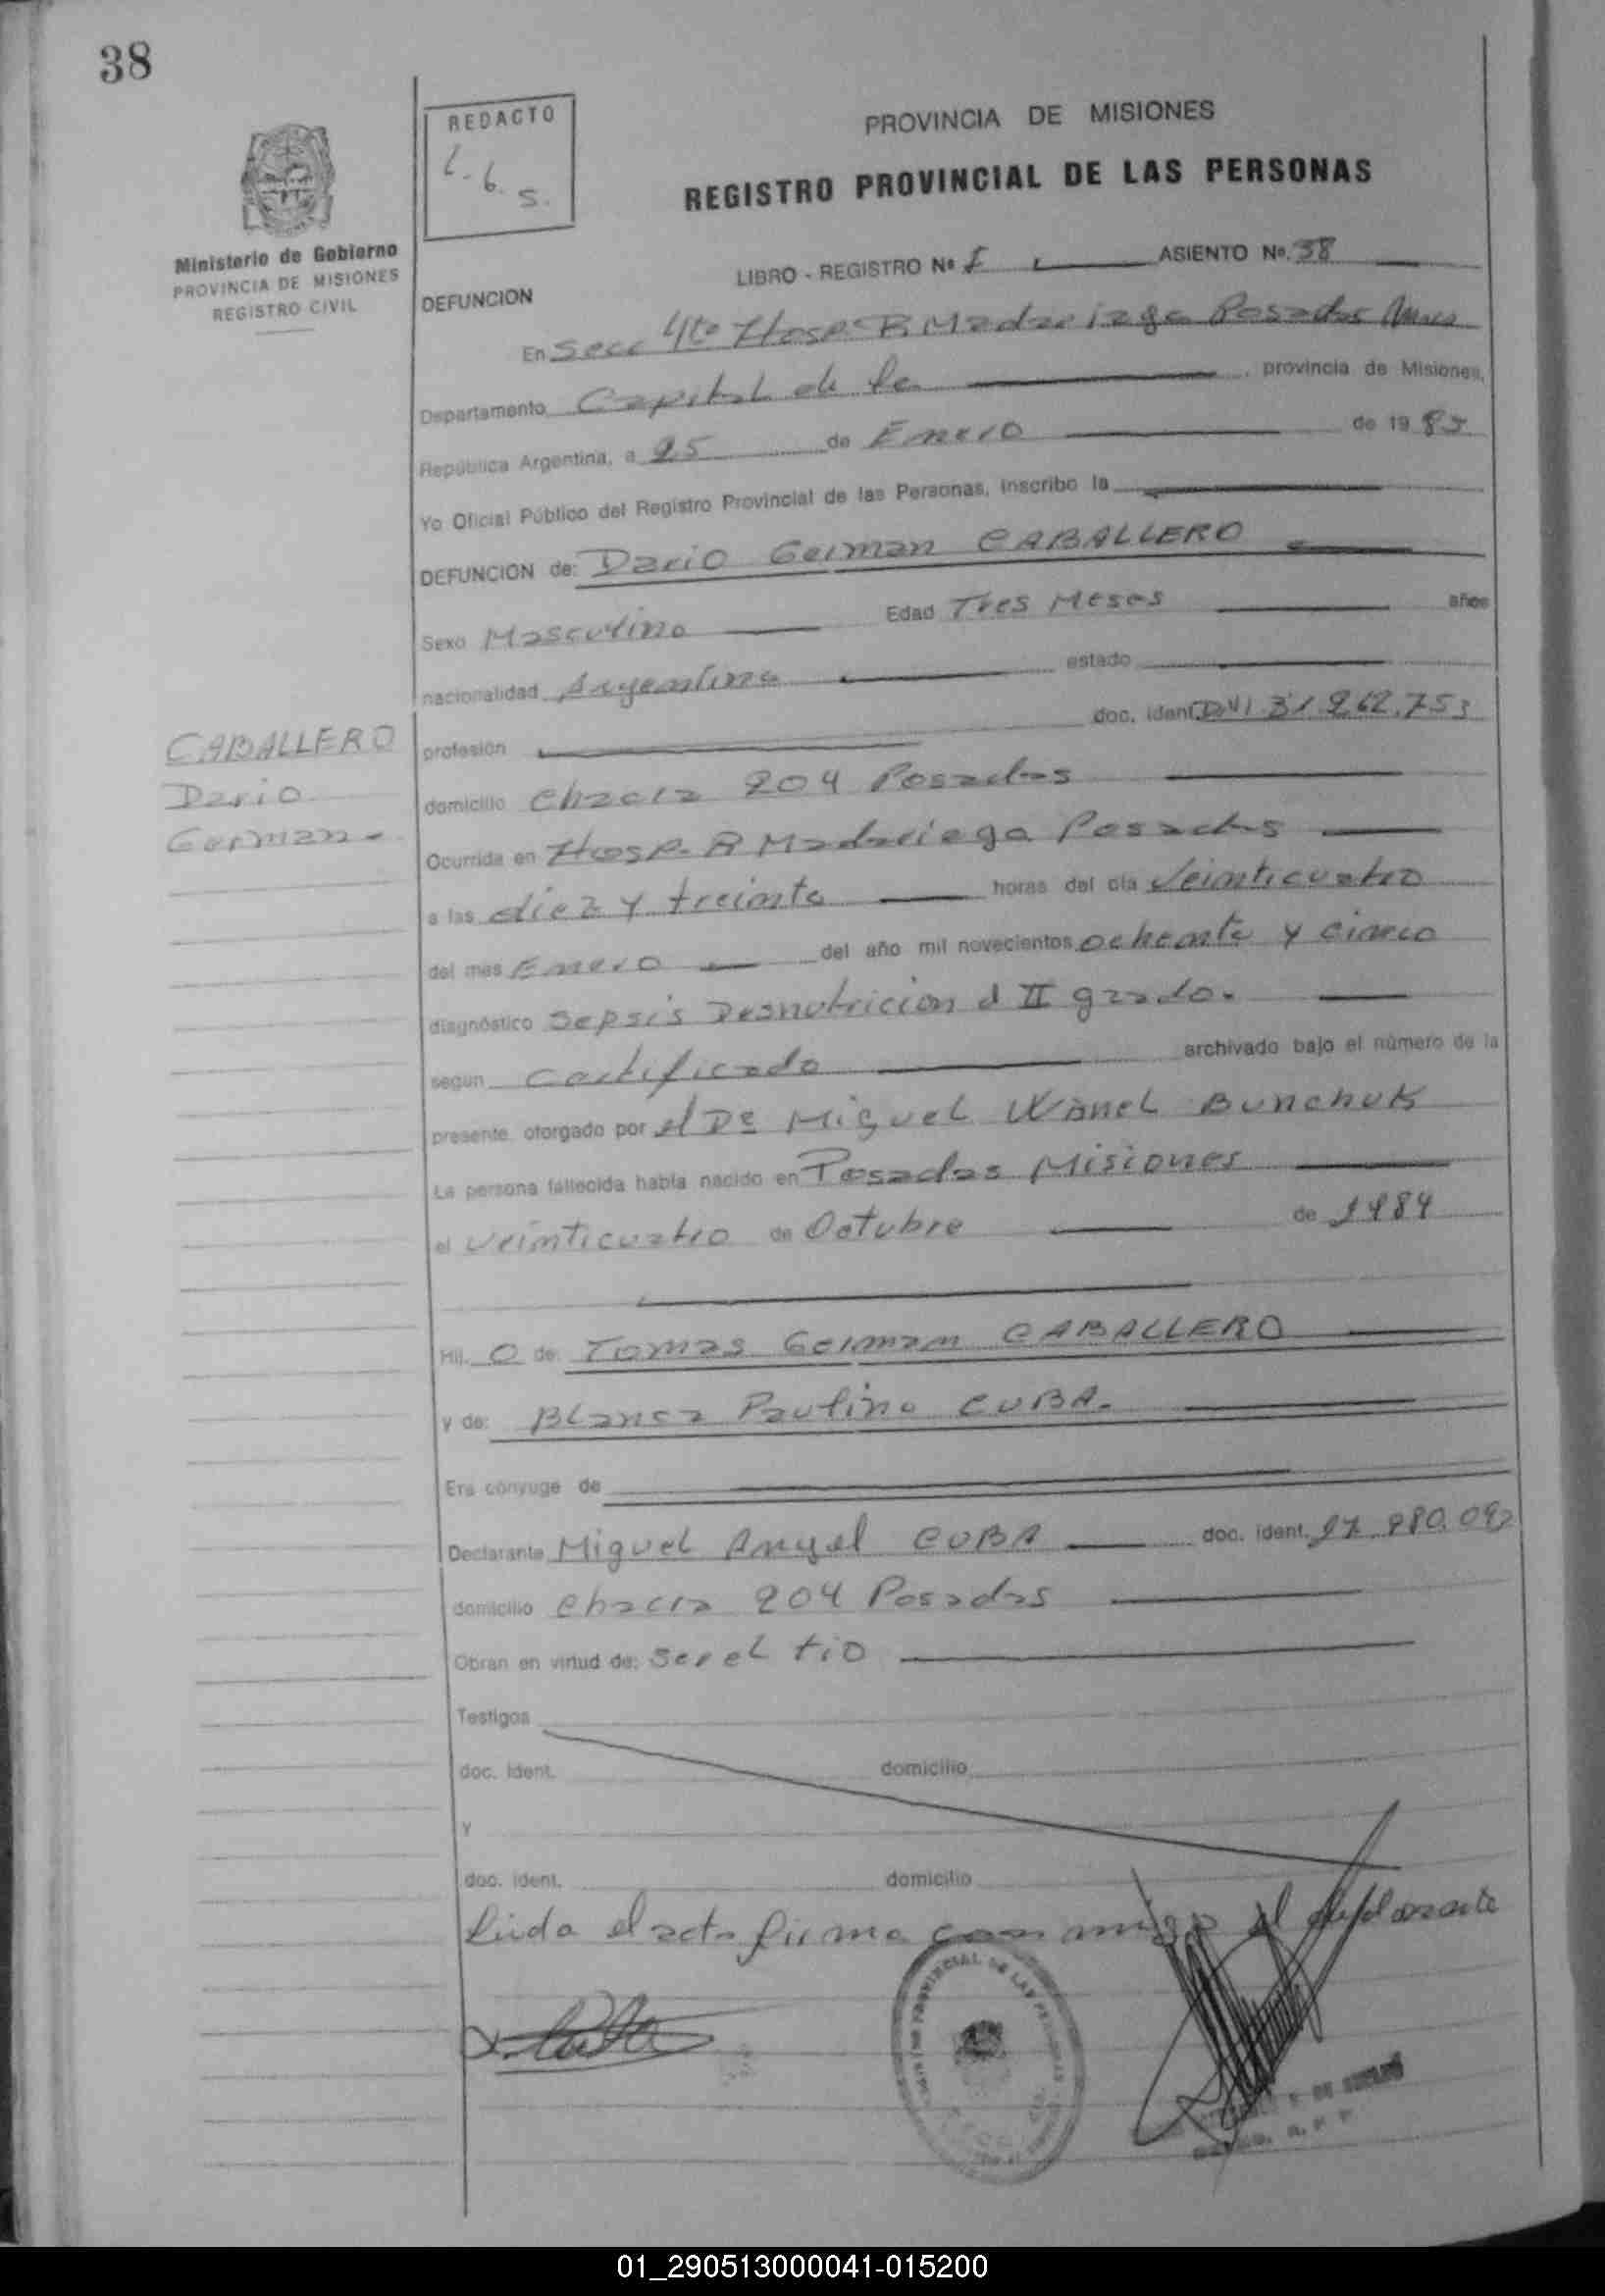 38
REDACTO
L. G. S.
PROVINCIA DE MISIONES
REGISTRO PROVINCIAL DE LAS PERSONAS
Ministerio de Gobierno
PROVINCIA DE MISIONES
REGISTRO CIVIL
LIBRO - REGISTRO Nº I ASIENTO Nº. 38
DEFUNCION
En Secc 4ta Hosp. R. Madariaga Posadas
Departamento Capital de la provincia de Misiones,
República Argentina, a 25 de Enero de 1985
Yo Oficial Público del Registro Provincial de las Personas, inscribo la
DEFUNCION de: Dario German CABALLERO
Sexo Masculino Edad Tres Meses años
nacionalidad Argentina estado
profesión doc. ident. DNI 31.262.753
CABALLERO
Dario
German
domicilio Chacra 204 Posadas
Ocurrida en Hosp. R Madariaga Posadas
a las diez y treinta horas del día Veinticuatro
del mes Enero del año mil novecientos ochenta y cinco
diagnóstico Sepsis Desnutricion d II grado.
según Certificado archivado bajo el número de la
presente, otorgado por el Dr Miguel Bunchuk
La persona fallecida había nacido en Posadas Misiones
el Veinticuatro de Octubre de 1984
Hij. O de: Tomas German CABALLERO
y de: Blanca Paulina CUBA.
Era cónyuge de
Declarante Miguel Angel CUBA doc. ident.
domicilio Chacra 204 Posadas
Obran en virtud de: Ser el tio
Testigos
doc. ident. domicilio
y
doc. ident. domicilio
Leida el acta firma con migo el declarante
01_290513000041-015200